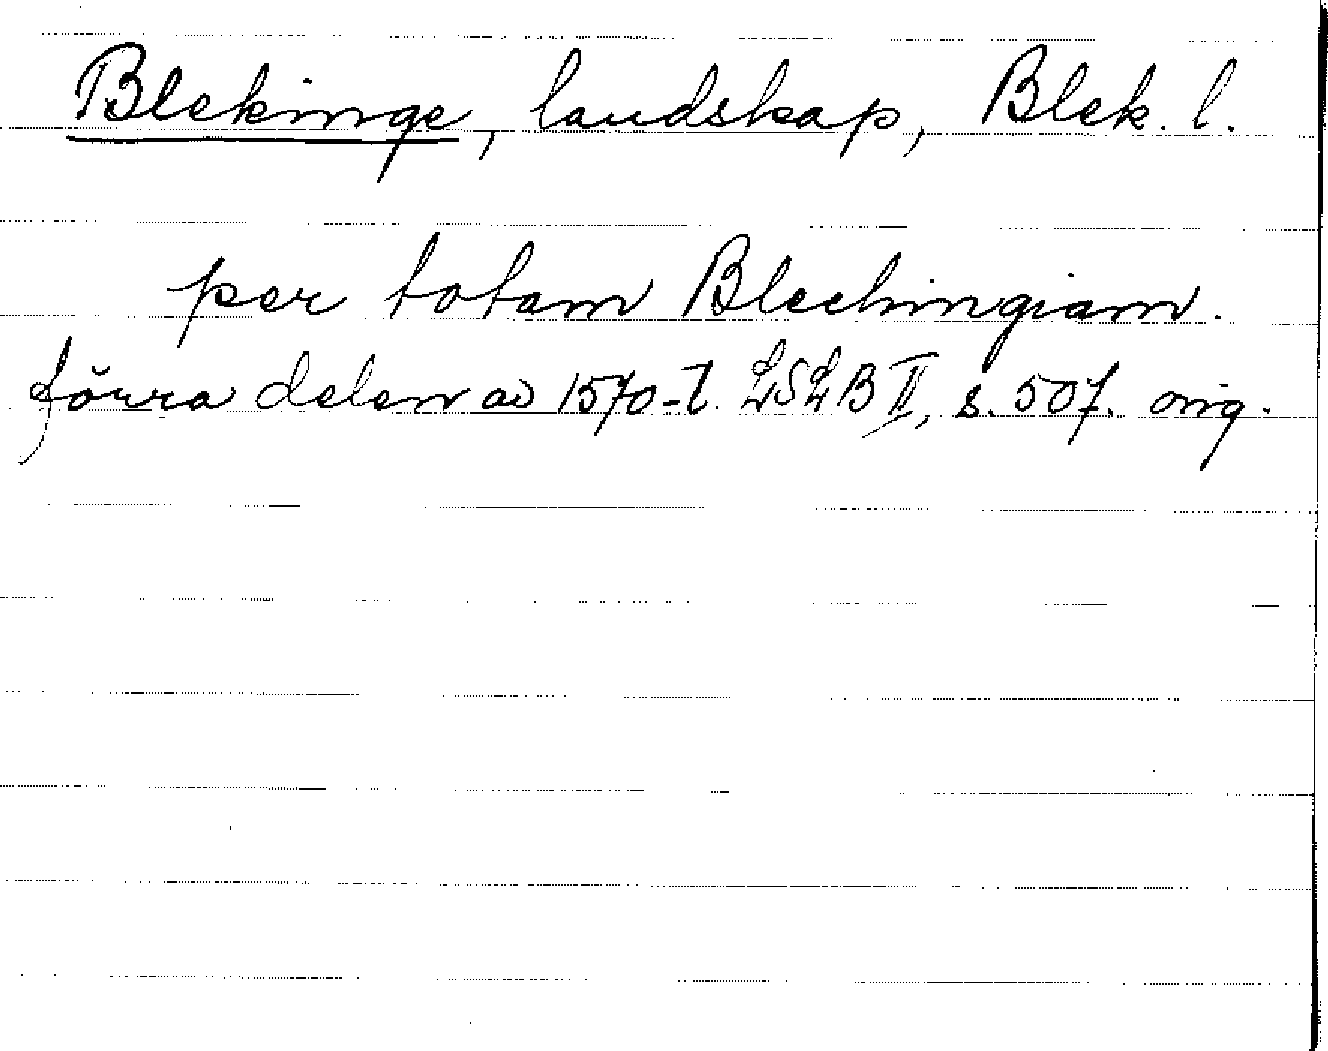 Blekinge, landskap, Blek. l.
per totam Blechingiam.
förra delen av 1570-t. LSLB II, s. 507. orig.